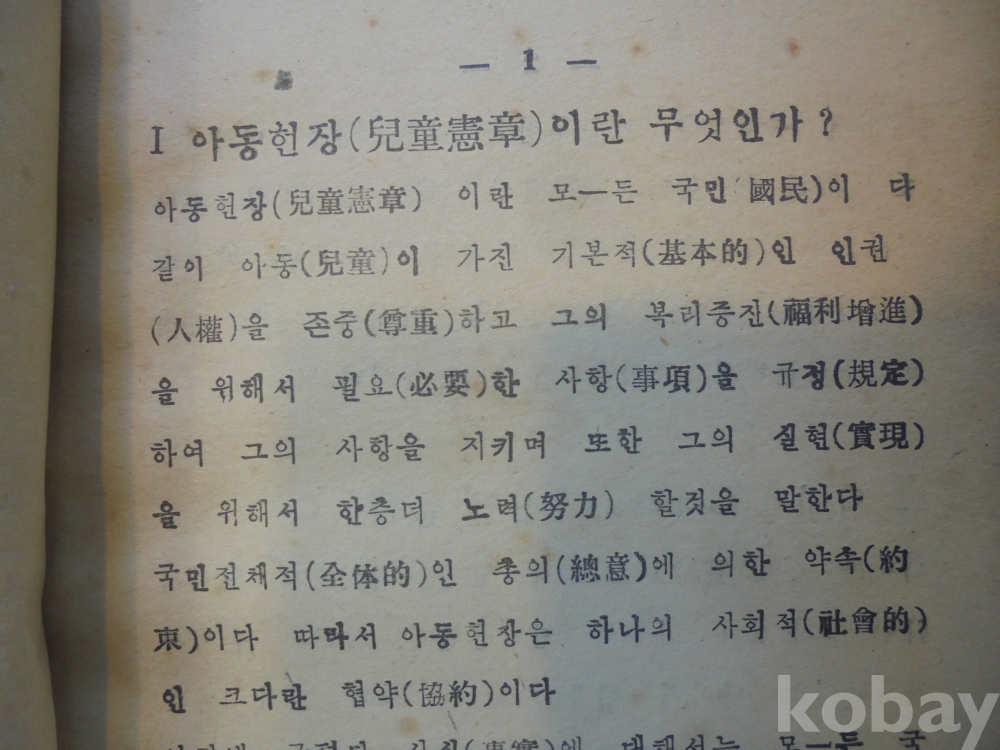 — 1 —
I 아동헌장(兒童憲章)이란 무엇인가?
아동헌장(兒童憲章) 이란 모—든 국민(國民)이 다
같이 아동(兒童)이 가진 기본적(基本的)인 인권
(人權)을 존중(尊重)하고 그의 복리증진(福利增進)
을 위해서 필요(必要)한 사항(事項)을 규정(規定)
하여 그의 사항을 지키며 또한 그의 실현(實現)
을 위해서 한층더 노력(努力) 할것을 말한다
국민전체적(全体的)인 총의(總意)에 의한 약속(約
束)이다 따라서 아동헌장은 하나의 사회적(社會的)
인 크다란 협약(協約)이다
사실(事實)에 대해서는 모—든 국
kobay